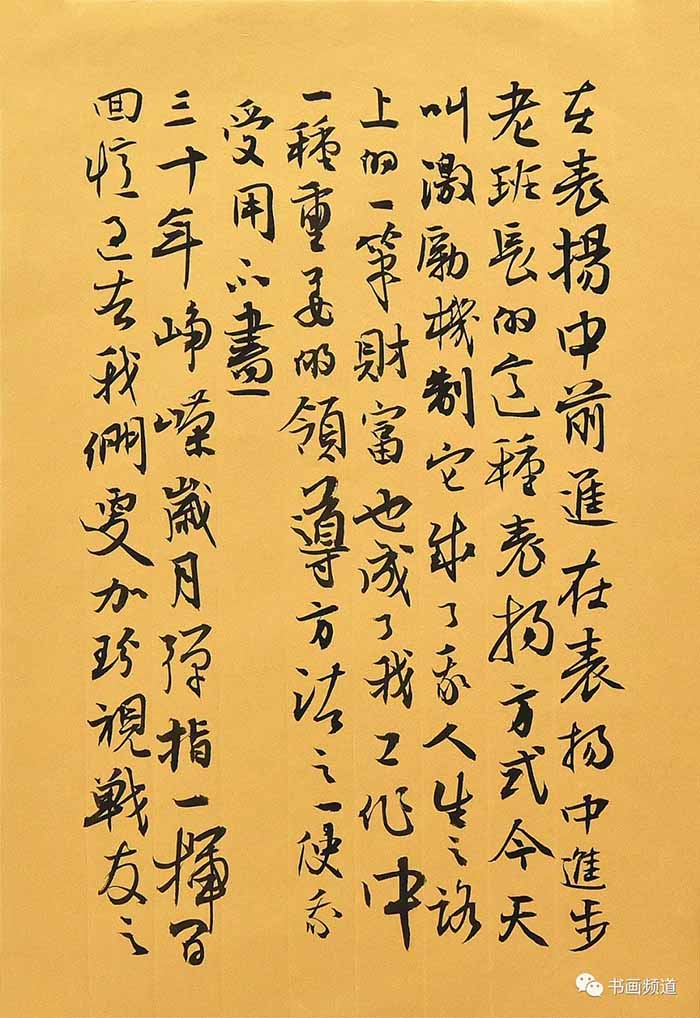 在表揚中前進在表揚中進步
老班長的這種表揚方式今天
叫激勵機制它成了我人生之路
上的一筆財富也成了我工作中
一種重要的領導方法之一使我
受用不盡
三十年崢嶸歲月彈指一揮間
回憶過去我們更加珍視戰友之
书画频道